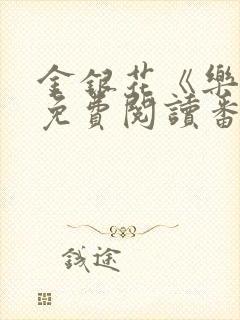 金銀花《樂
免費閱讀番
錢途